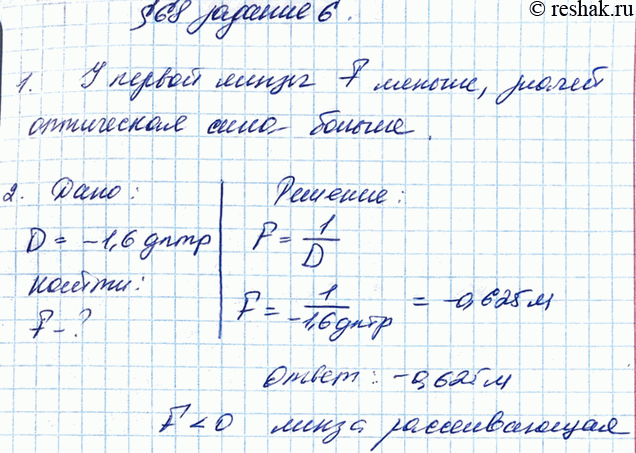 © reshak.ru
§68 задание 6.
1. У первой линзы F меньше, значит
оптическая сила - больше.
2. Дано:
D = -1,6 дптр
Найти:
F - ?
Решение:
F = 1/D
F = 1/-1,6 дптр = -0,625 м
Ответ: -0,625 м
F < 0 линза рассеивающая